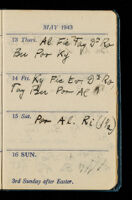 MAY 1943
13 Thurs. Al Fie Tay Ds Ro
Bu Por Ky
14 Fri. Ky Fie Eor Ds Ro
Tay Bu Por Al
15 Sat.
Por Al. Ri (1/2)
16 SUN.
3rd Sunday after Easter.